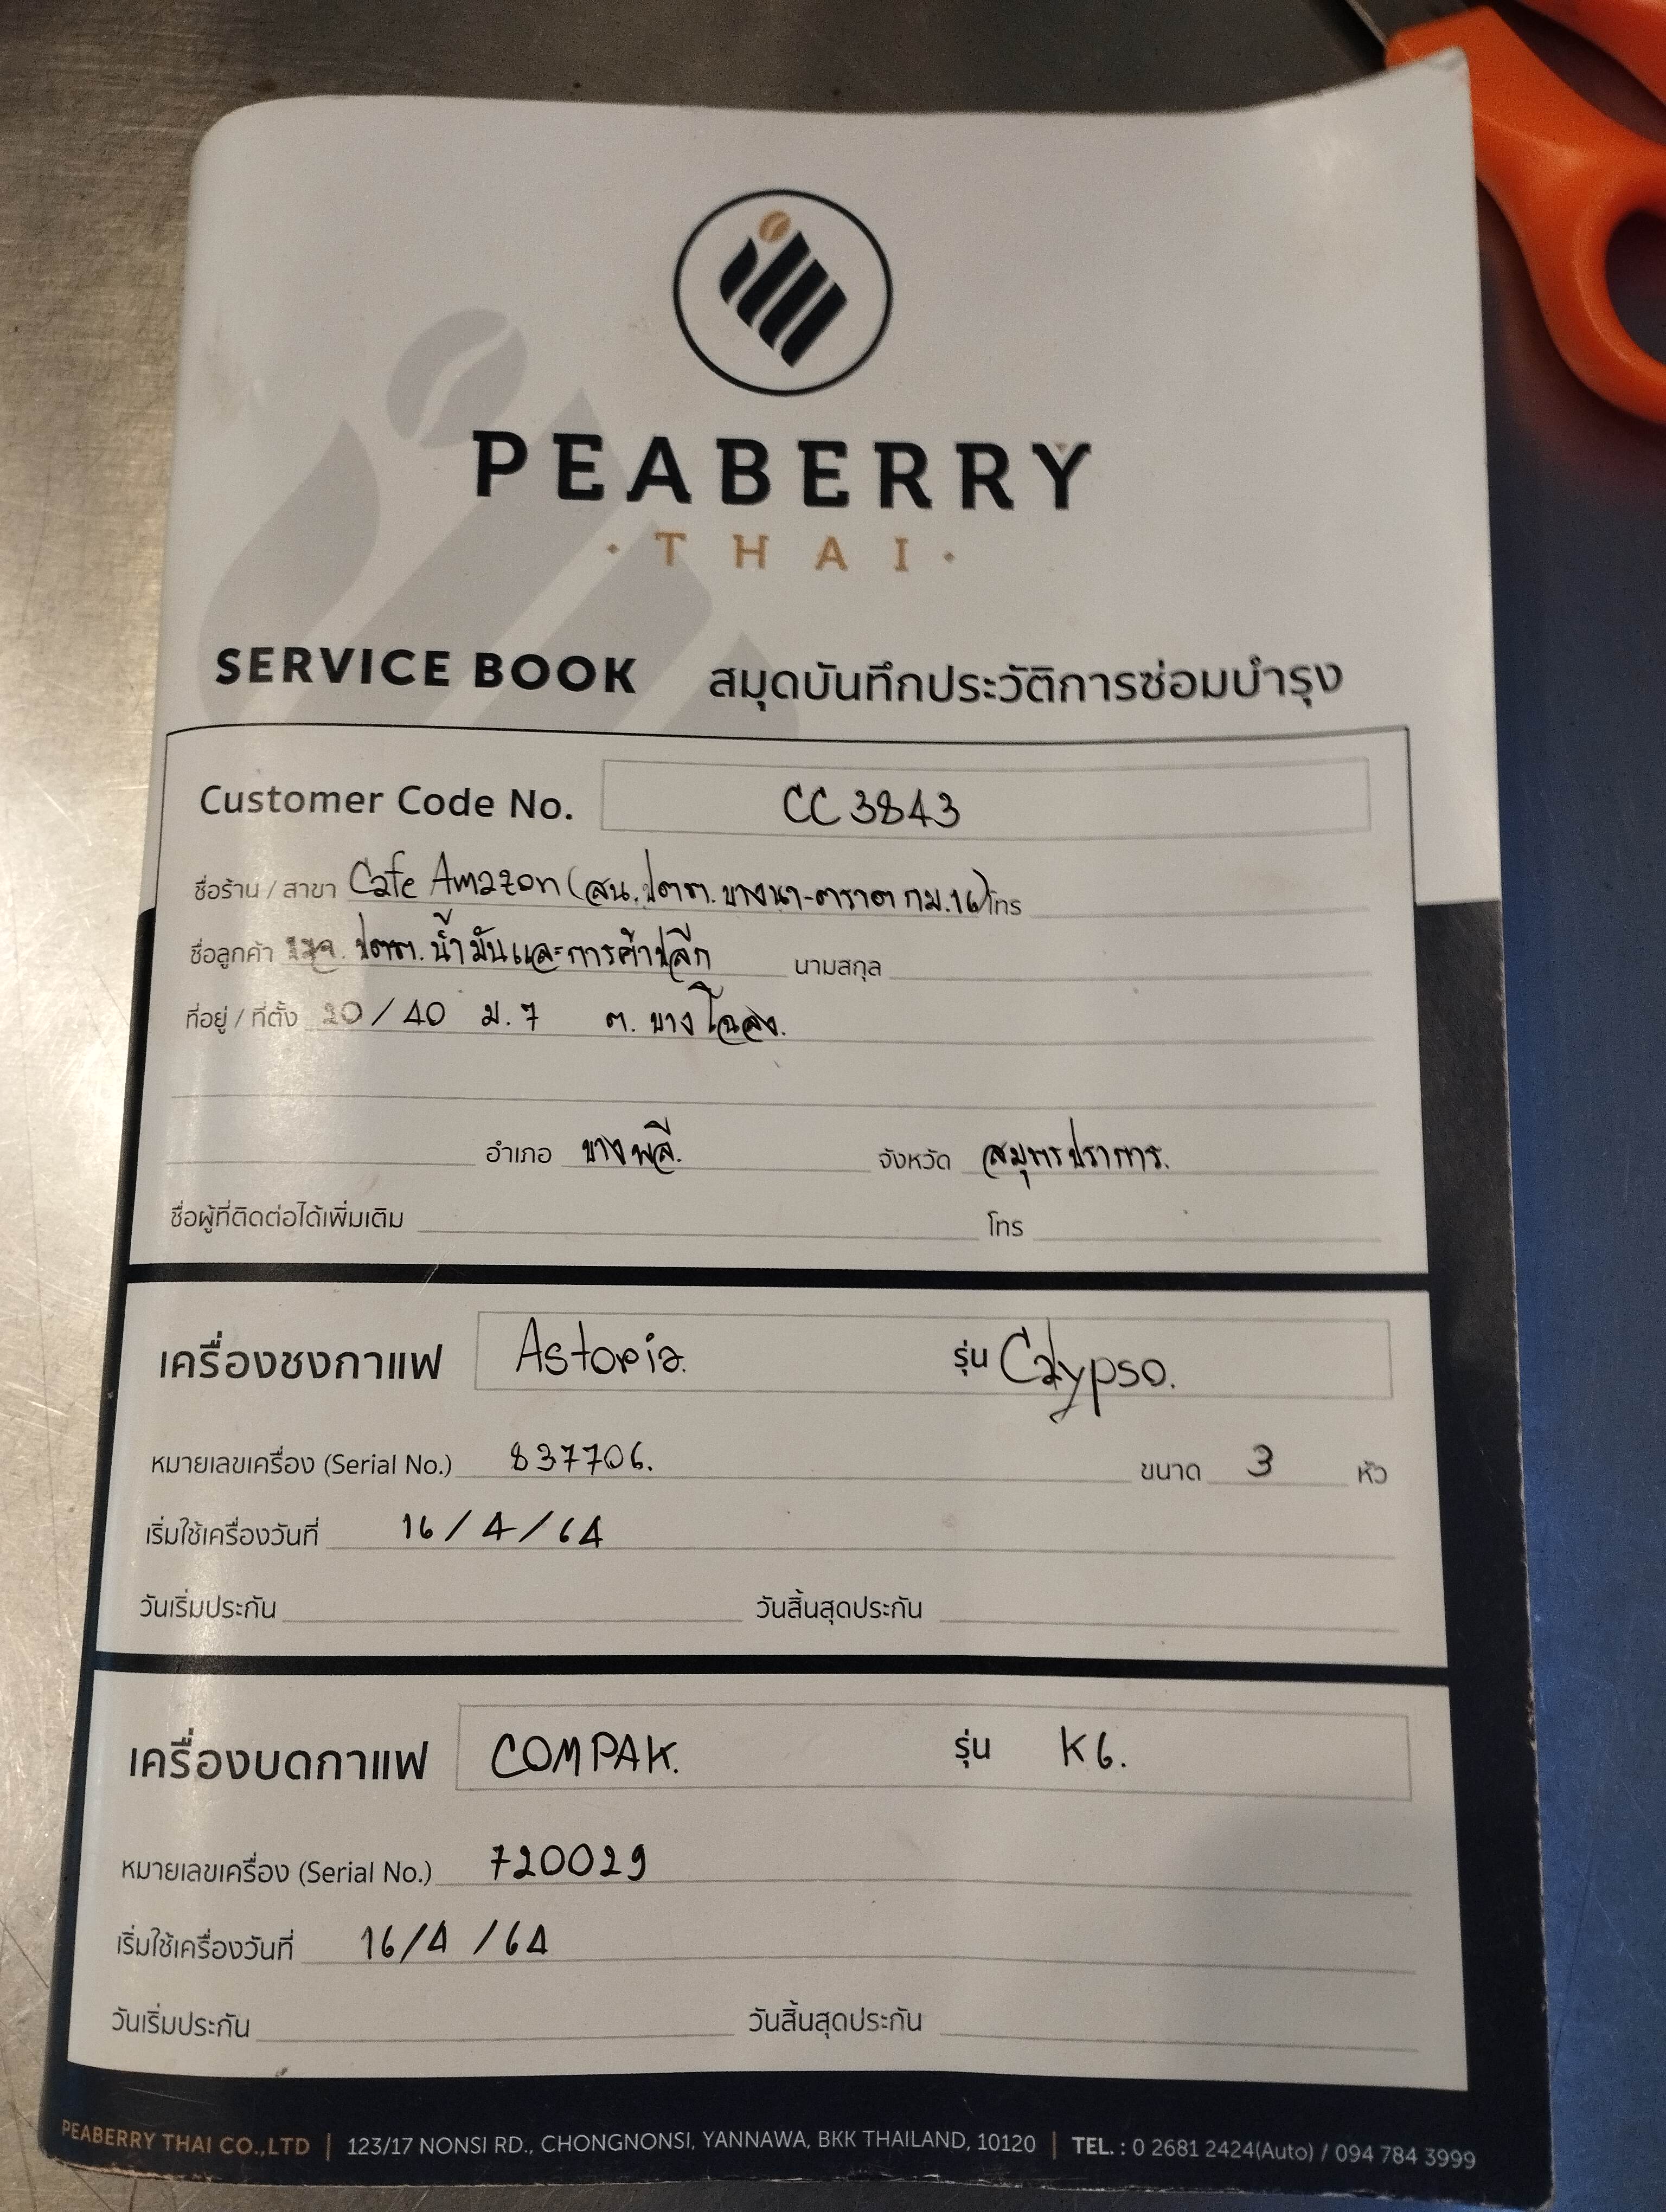 PEABERRY
· THAI ·
SERVICE BOOK สมุดบันทึกประวัติการซ่อมบำรุง
Customer Code No. CC 3843
ชื่อร้าน / สาขา Cafe Amazon (สน.ปตท. บางนา-ตราด กม.16) โทร
ชื่อลูกค้า ปตท. น้ำมันและการค้าปลีก นามสกุล
ที่อยู่ / ที่ตั้ง 20/40 ม.7 ต. บางโฉลง.
อำเภอ บางพลี. จังหวัด สมุทรปราการ.
ชื่อผู้ที่ติดต่อได้เพิ่มเติม โทร
เครื่องชงกาแฟ Astoria. รุ่น Calypso.
หมายเลขเครื่อง (Serial No.) 837706. ขนาด 3 หัว
เริ่มใช้เครื่องวันที่ 16/4/64
วันเริ่มประกัน วันสิ้นสุดประกัน
เครื่องบดกาแฟ COMPAK. รุ่น K6.
หมายเลขเครื่อง (Serial No.) 720029
เริ่มใช้เครื่องวันที่ 16/4/64
วันเริ่มประกัน วันสิ้นสุดประกัน
PEABERRY THAI CO.,LTD | 123/17 NONSI RD., CHONGNONSI, YANNAWA, BKK THAILAND, 10120 | TEL. : 0 2681 2424(Auto) / 094 784 3999